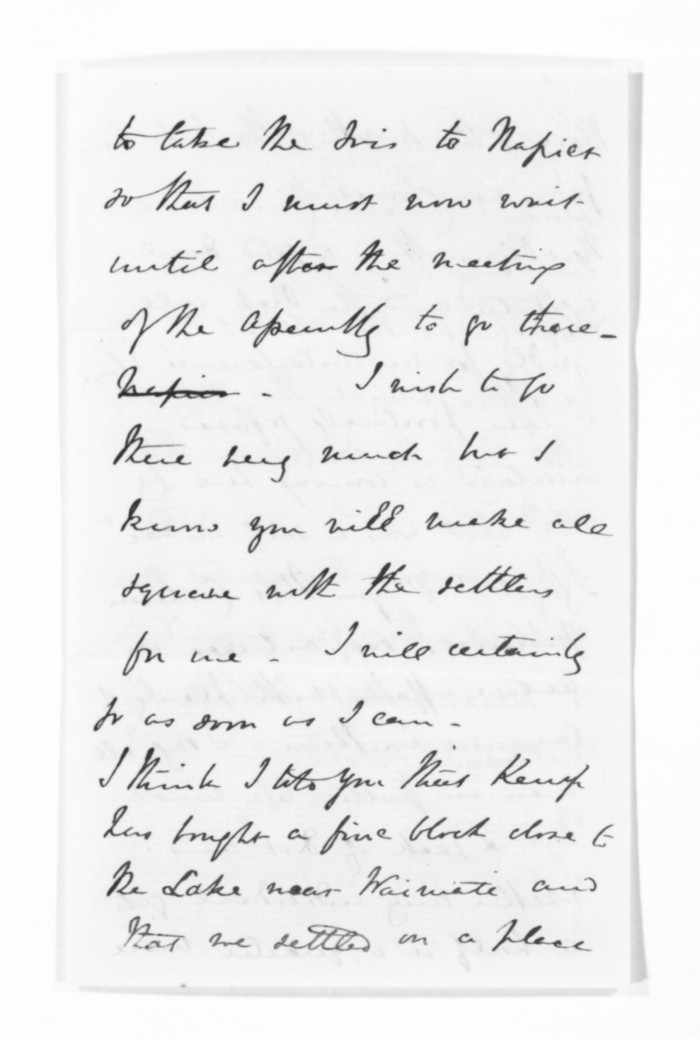 to take the Iris to Napier
so that I must now wait
until after the meeting
of the Assembly to go there -
Napier - I wish to go
there very much but I
know you will make all
square with the settlers
for me - I will certainly
go as soon as I can -
I think I told you that Kemp
has bought a fine block close to
the Lake near Waimate and
that we settled on a place